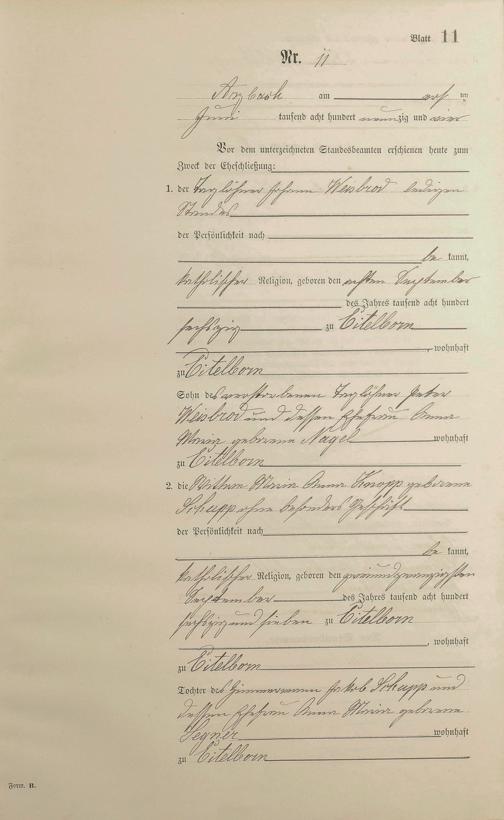 Blatt 11
Nr. 11
Arzbach am
Juni tausend acht hundert neunzig und vier
Vor dem unterzeichneten Standesbeamten erschienen heute zum
Zweck der Eheschließung:
1. der Taglöhner Johann Weisbrod ledigen
Standes
der Persönlichkeit nach
be kannt,
katholischer Religion, geboren den ersten September
des Jahres tausend acht hundert
sechszig zu Eitelborn
, wohnhaft
zu Eitelborn
Sohn des verstorbenen Taglöhner Peter
Weisbrod und dessen Ehefrau Anna
Maria geborene Nagel wohnhaft
zu Eitelborn
2. die Wittwe Maria Anna Knopp geborene
Schupp ohne besonders Geschäft
der Persönlichkeit nach
be kannt,
katholischer Religion, geboren den zweiundzwanzigsten
September des Jahres tausend acht hundert
sechszig und sieben zu Eitelborn
, wohnhaft
zu Eitelborn
Tochter des Zimmermann Jakob Schupp und
dessen Ehefrau Anna Maria geborene
wohnhaft
zu Eitelborn
Form. B.